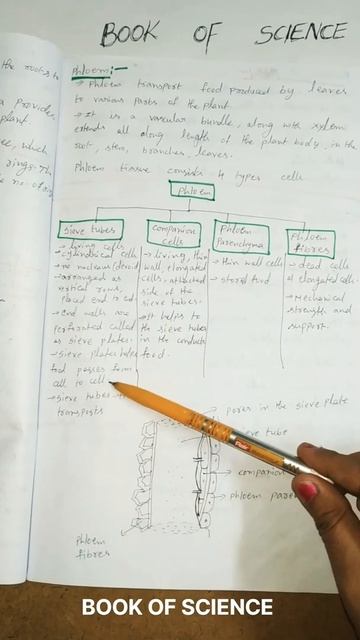 BOOK OF SCIENCE
the roots to
provides
plant.
which
Phloem:-
→ Phloem transport food produced by leaves
to various parts of the plant
→ It is a vascular bundle, along with xylem
extends all along length of the plant body, in the
root, stem, branches, leaves.
Phloem tissue consists 4 types cells
Phloem
Sieve tubes
→ living cells
→ cylindrical cells
→ no nucleus
→ arranged as
vertical rows,
placed end to end
→ End walls are
perforated called
as sieve plates.
→ sieve plates helps
food passes from
cell to cell
→ sieve tubes
transports
Companion
cells
→ living, thin
wall, elongated
cells, attached
side of the
sieve tubes.
→ It helps to
the sieve tubes
in the conduct
food.
Phloem
Parenchyma
→ thin wall cells
→ stored food
Phloem
fibres
→ dead cells
elongated cells.
→ Mechanical
strength and
support.
pores in the sieve plate
sieve tube
companion
phloem
Phloem
fibres
BOOK OF SCIENCE